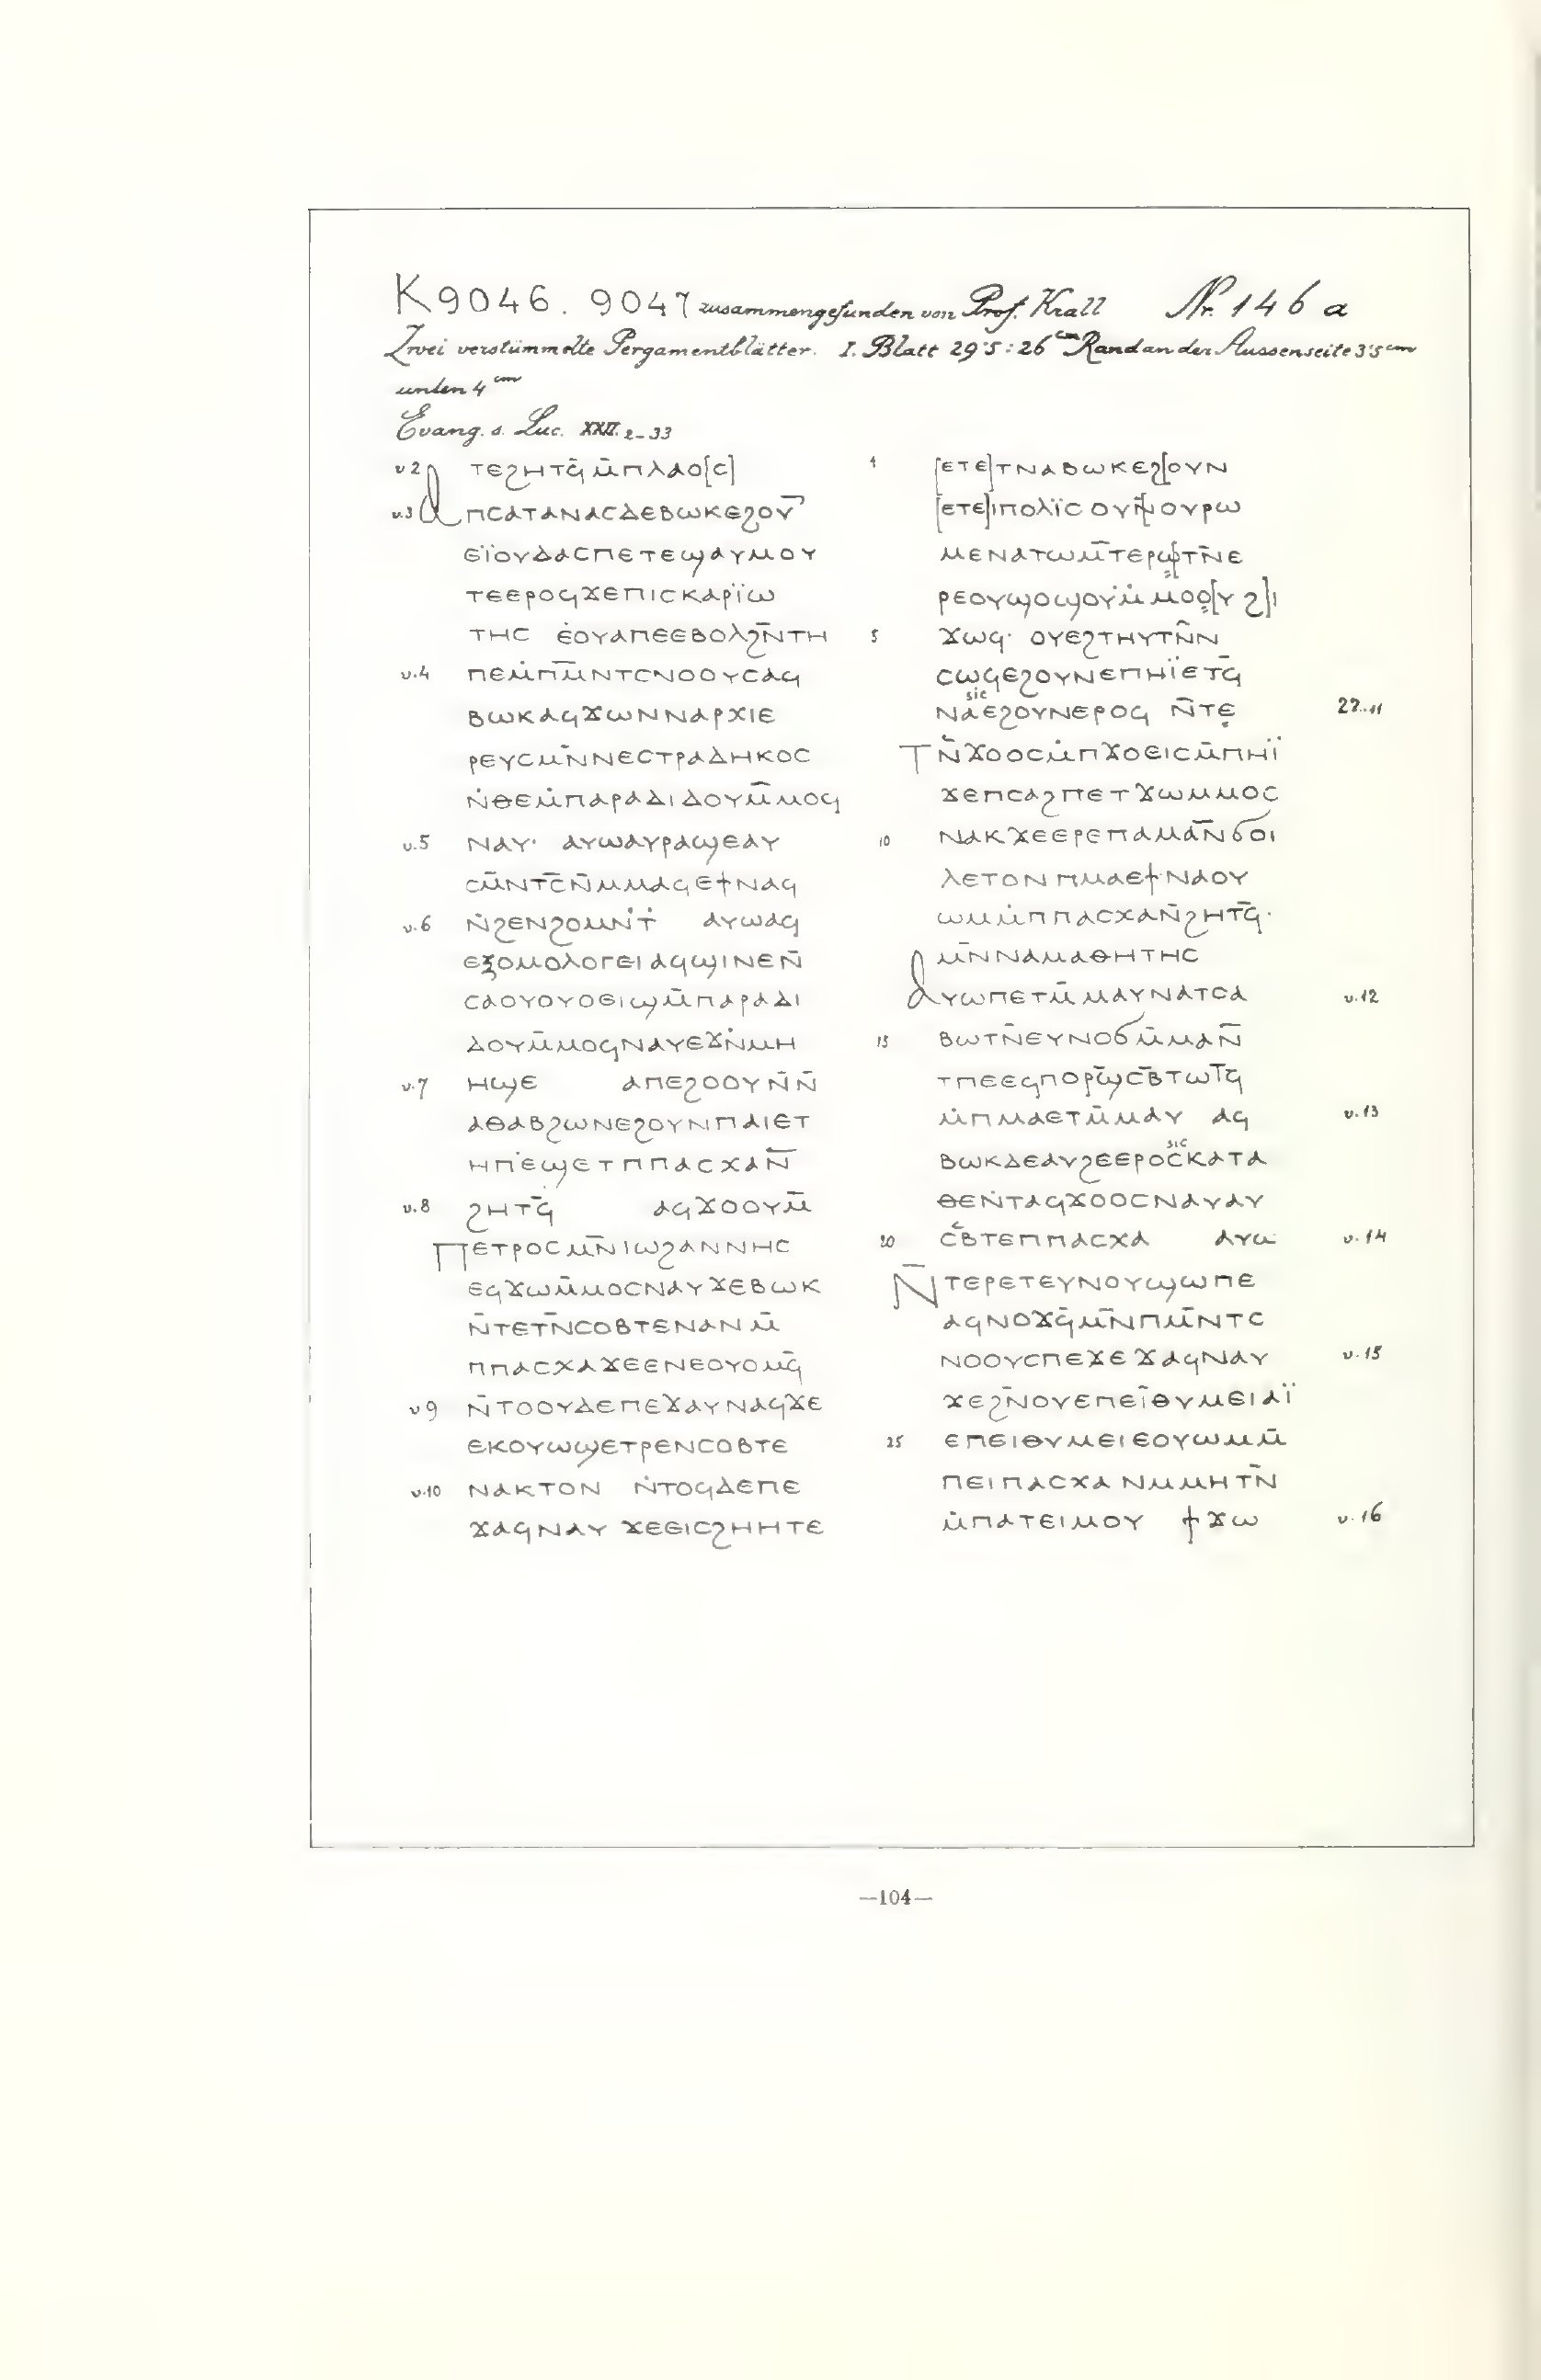 K 9046. 9047 zusammengefunden von Prof. Krall Nr. 146 a
Zwei verstümmelte Pergamentblätter. I. Blatt 29·5 : 26 cm Rand an der Aussenseite 3·5 cm
unten 4 cm
Evang. s. Luc. XXII. 2-33
v 2 ⲧⲉϩⲏⲧϥ̄ ⲙ̄ⲡⲗⲁⲟ[ⲥ]
v.3 ⲁⲡⲥⲁⲧⲁⲛⲁⲥⲇⲉⲃⲱⲕⲉϩⲟⲩⲛ̅
ⲉⲓ̈ⲟⲩⲇⲁⲥⲡⲉⲧⲉϣⲁⲩⲙⲟⲩ
ⲧⲉⲉⲣⲟϥϫⲉⲡⲓⲥⲕⲁⲣⲓ̈ⲱ
ⲧⲏⲥ ⲉ̇ⲟⲩⲁⲡⲉⲉⲃⲟⲗϩⲛ̄ⲧⲏ
v.4 ⲡⲉⲙ̇ⲡⲙ̄ⲛⲧⲥⲛⲟⲟⲩⲥⲁϥ
ⲃⲱⲕⲁϥϫⲱⲛⲛⲁⲣⲭⲓⲉ
ⲣⲉⲩⲥⲙⲛ̄ⲛⲉⲥⲧⲣⲁⲇⲏⲕⲟⲥ
ⲛ̇ⲑⲉⲙ̇ⲡⲁⲣⲁⲇⲓⲇⲟⲩⲙ̄ⲙⲟϥ
v.5 ⲛⲁⲩ· ⲁⲩⲱⲁⲩⲣⲁϣⲉⲁⲩ
ⲥⲙ̄ⲛⲧⲥ̄ⲛ̄ⲙⲙⲁϥⲉϯⲛⲁϥ
v.6 ⲛ̇ϩⲉⲛϩⲟⲙⲛ̇ⲧ̇ ⲁⲩⲱⲁϥ
ⲉⲝⲟⲙⲟⲗⲟⲅⲉⲓⲁϥϣⲓⲛⲉⲛ̄
ⲥⲁⲟⲩⲟⲩⲟⲉⲓϣⲙ̄ⲡⲁⲣⲁⲇⲓ
ⲇⲟⲩⲙ̄ⲙⲟϥⲛⲁⲩⲉϫⲛ̇ⲙⲏ
v.7 ⲏϣⲉ ⲁⲡⲉϩⲟⲟⲩⲛ̄ⲛ̄
ⲁⲑⲁⲃϩⲱⲛⲉϩⲟⲩⲛⲡⲁⲓⲉⲧ
ⲏⲡⲉϣⲉⲧⲡⲡⲁⲥⲭⲁⲛ̄
v.8 ϩⲏⲧϥ̄ ⲁϥϫⲟⲟⲩⲙ̄
ⲡⲉⲧⲣⲟⲥⲙⲛ̄ⲓⲱϩⲁⲛⲛⲏⲥ
ⲉϥϫⲱⲙ̄ⲙⲟⲥⲛⲁⲩϫⲉⲃⲱⲕ
ⲛ̄ⲧⲉⲧⲛ̄ⲥⲟⲃⲧⲉⲛⲁⲛⲙ̄
ⲡⲡⲁⲥⲭⲁϫⲉⲉⲛⲉⲟⲩⲟⲙϥ̄
v 9 ⲛ̄ⲧⲟⲟⲩⲇⲉⲡⲉϫⲁⲩⲛⲁϥϫⲉ
ⲉⲕⲟⲩⲱϣⲉⲧⲣⲉⲛⲥⲟⲃⲧⲉ
v.10 ⲛⲁⲕⲧⲟⲛ ⲛ̇ⲧⲟϥⲇⲉⲡⲉ
ϫⲁϥⲛⲁⲩ ϫⲉⲉⲓⲥϩⲏⲏⲧⲉ
1 [ⲉⲧⲉ]ⲧⲛⲁⲃⲱⲕⲉϩ[ⲟⲩⲛ
[ⲉⲧⲉ]ⲓⲡⲟⲗⲓ̈ⲥ ⲟⲩⲛ̄ⲟⲩⲣⲱ
ⲙⲉⲛⲁⲧⲱⲙ̄ⲧⲉⲣⲱⲧⲛ̄ⲉ
ⲣⲉⲟⲩϣⲟϣⲟⲩⲙ̇ⲙⲟⲟ[ⲩ ϩ]ⲓ
5 ϫⲱϥ· ⲟⲩⲉϩⲧⲏⲩⲧⲛ̄ⲛ
ⲥⲱϥⲉϩⲟⲩⲛⲉⲡⲏⲓ̈ⲉⲧϥ̄
sic
ⲛⲁⲉϩⲟⲩⲛⲉⲣⲟϥ ⲛ̄ⲧⲉ 22.11
ⲧⲛ̄ϫⲟⲟⲥⲙ̇ⲡϫⲟⲉⲓⲥⲙ̄ⲡⲏⲓ̈
ϫⲉⲡⲥⲁϩⲡⲉⲧϫⲱⲙⲙⲟⲥ
10 ⲛⲁⲕϫⲉⲉⲣⲉⲡⲁⲙⲁⲛ̄ϭⲟⲓ
ⲗⲉⲧⲟⲛ ⲡⲙⲁⲉϯⲛⲁⲟⲩ
ⲱⲙⲙ̇ⲡⲡⲁⲥⲭⲁⲛ̄ϩⲏⲧϥ̄·
ⲙⲛ̄ⲛⲁⲙⲁⲑⲏⲧⲏⲥ
ⲁⲩⲱⲡⲉⲧⲙ̄ⲙⲁⲩⲛⲁⲧⲥⲁ v.12
15 ⲃⲱⲧⲛ̄ⲉⲩⲛⲟϭⲙ̄ⲙⲁⲛ̄
ⲧⲡⲉⲉϥⲡⲟⲣϣ̄ⲥ̄ⲃⲧⲱⲧϥ̄
ⲙ̇ⲡⲙⲁⲉⲧⲙ̄ⲙⲁⲩ ⲁϥ v.13
sic
ⲃⲱⲕⲇⲉⲁⲩϩⲉⲉⲣⲟⲥⲕⲁⲧⲁ
ⲑⲉⲛ̇ⲧⲁϥϫⲟⲟⲥⲛⲁⲩⲁⲩ
20 ⲥ̄ⲃⲧⲉⲡⲡⲁⲥⲭⲁ ⲁⲩⲱ v.14
ⲛ̄ⲧⲉⲣⲉⲧⲉⲩⲛⲟⲩϣⲱⲡⲉ
ⲁϥⲛⲟϫϥ̄ⲙⲛ̄ⲡⲙ̄ⲛⲧⲥ
ⲛⲟⲟⲩⲥⲡⲉϫⲉϫⲁϥⲛⲁⲩ v.15
ϫⲉϩⲛ̄ⲟⲩⲉⲡⲉⲓ̈ⲑⲩⲙⲉⲓⲁⲓ̈
25 ⲉⲡⲉⲓⲑⲩⲙⲉⲓⲉⲟⲩⲱⲙⲙ̄
ⲡⲉⲓⲡⲁⲥⲭⲁ ⲛⲙⲙⲏⲧⲛ̄
ⲙ̇ⲡⲁⲧⲉⲓⲙⲟⲩ ϯϫⲱ v.16
—104—